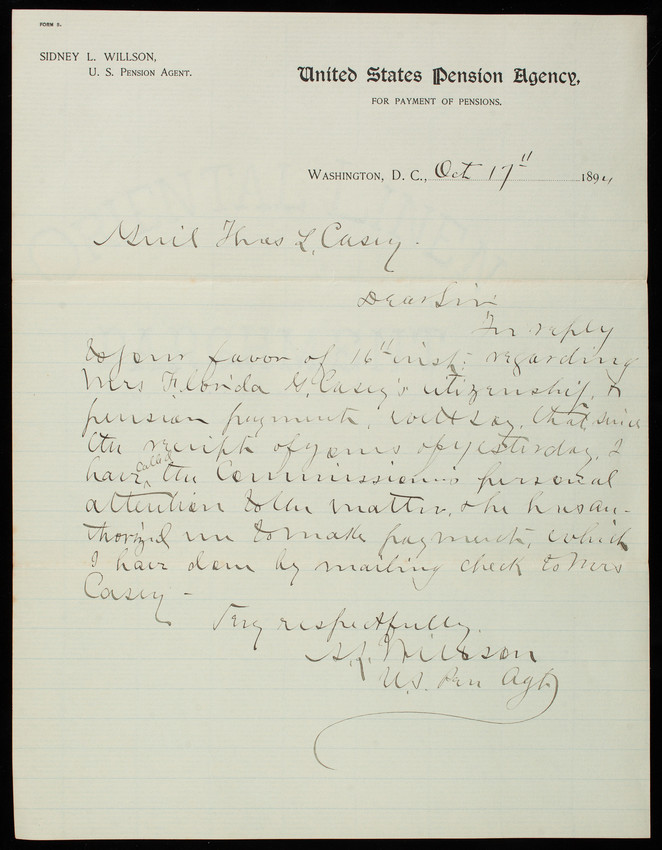 FORM 5.
SIDNEY L. WILLSON,
U. S. PENSION AGENT.
United States Pension Agency,
FOR PAYMENT OF PENSIONS.
WASHINGTON, D. C., Oct 17" 1894
Genl Thos L, Casey.
Dear Sir:
In reply
to your favor of 16" inst: regarding
Mrs Florida G, Casey's citizenship, &
pension payment, will say, that, since
the receipt of yours of yesterday, I
have called the Commissioner's personal
attention to the matter, & he has au-
thorized me to make payment, which
I have done by mailing check to Mrs
Casey -
Very respectfully,
S. L. Willson
U.S. Pen Agt